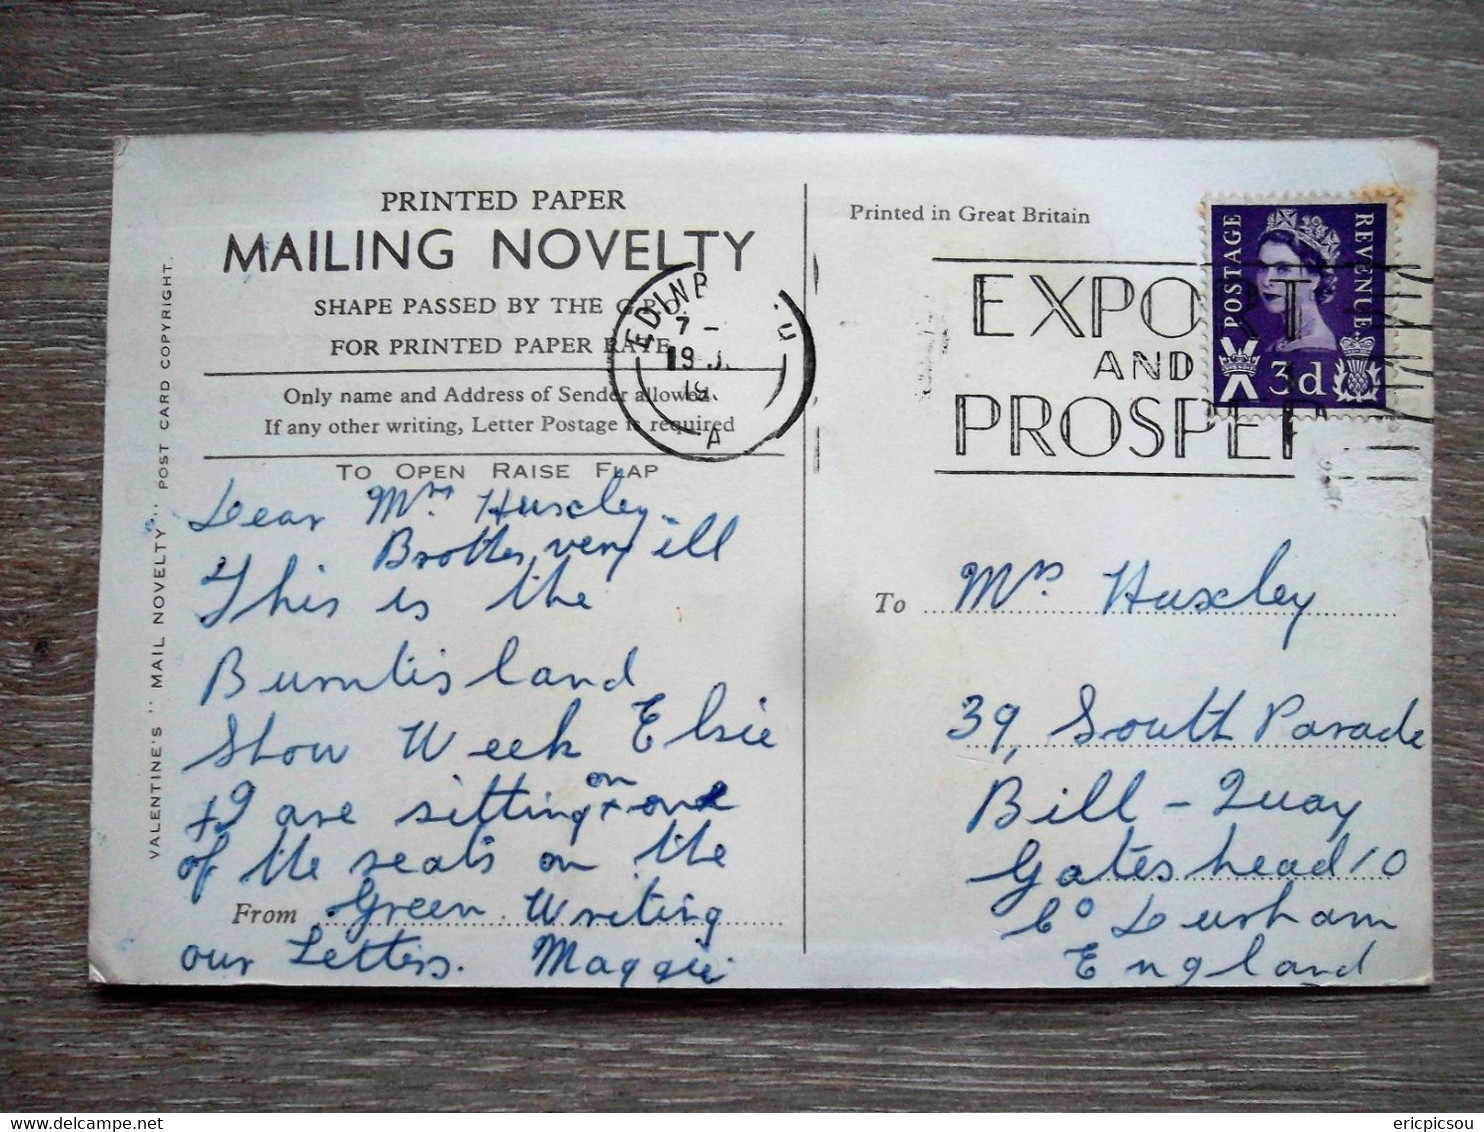 PRINTED PAPER
MAILING NOVELTY
SHAPE PASSED BY THE G.P.O.
FOR PRINTED PAPER RATE
Only name and Address of Sender allowed.
If any other writing, Letter Postage is required
TO OPEN RAISE FLAP
VALENTINE'S "MAIL NOVELTY" POST CARD COPYRIGHT.
Dear Mrs Huxley.
Brother very ill
This is the
Burntisland
Show Week Elsie
+ I are sitting on one
of the seats on the
From Green Writing
our Letters. Maggie
Printed in Great Britain
EDINB
7 -
19 J
19
A
EXPORT
AND
PROSPER
POSTAGE
REVENUE
3d
To Mrs Huxley
39, South Parade
Bill - Quay
Gateshead 10
Co Durham
England
ericpicsou